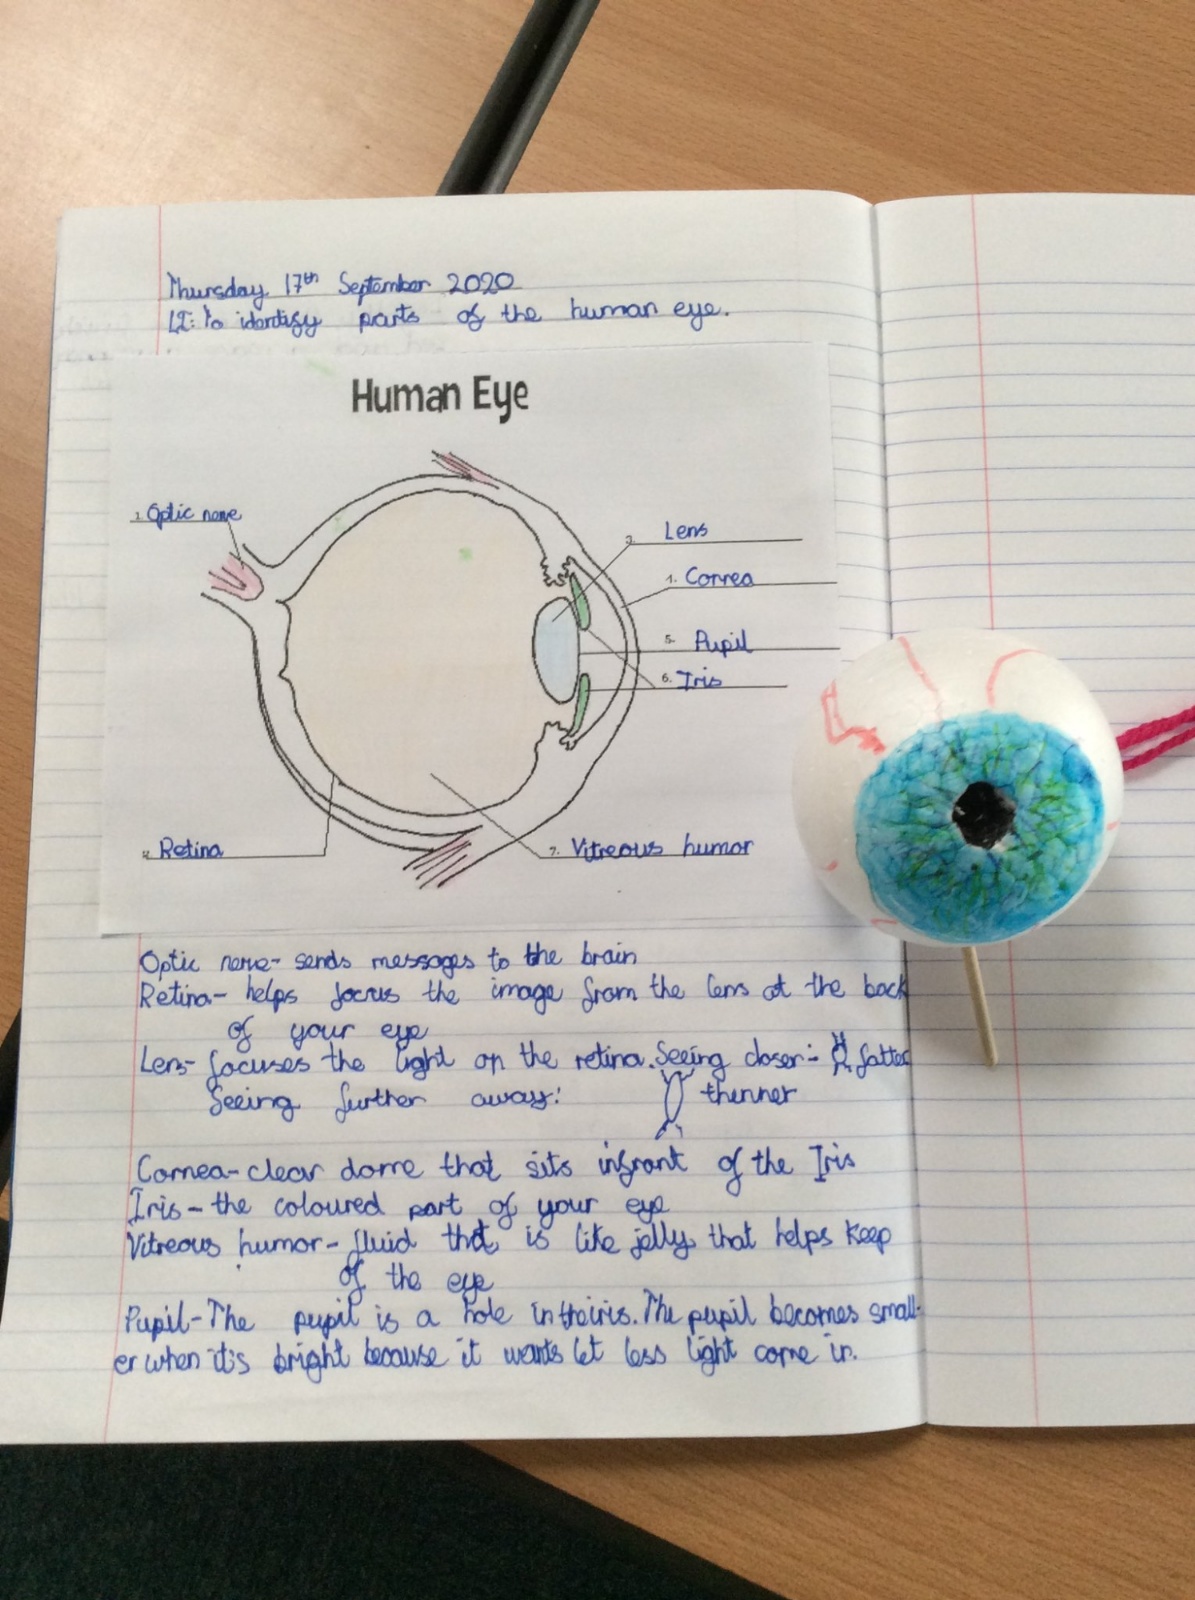 Thursday 17th September 2020
LI: To identify parts of the human eye.
Human Eye
1. Optic nerve
3. Lens
4. Cornea
5. Pupil
6. Iris
2. Retina
7. Vitreous humor
Optic nerve- sends messages to the brain
Retina- helps focus the image from the lens at the back
of your eye
Lens- focuses the light on the retina. Seeing closer:- fatter
Seeing further away: thinner
Cornea- clear dome that sits infront of the Iris
Iris- the coloured part of your eye
Vitreous humor- fluid that is like jelly that helps keep
of the eye
Pupil- The pupil is a hole in the iris. The pupil becomes small-
er when it's bright because it wants let less light come in.